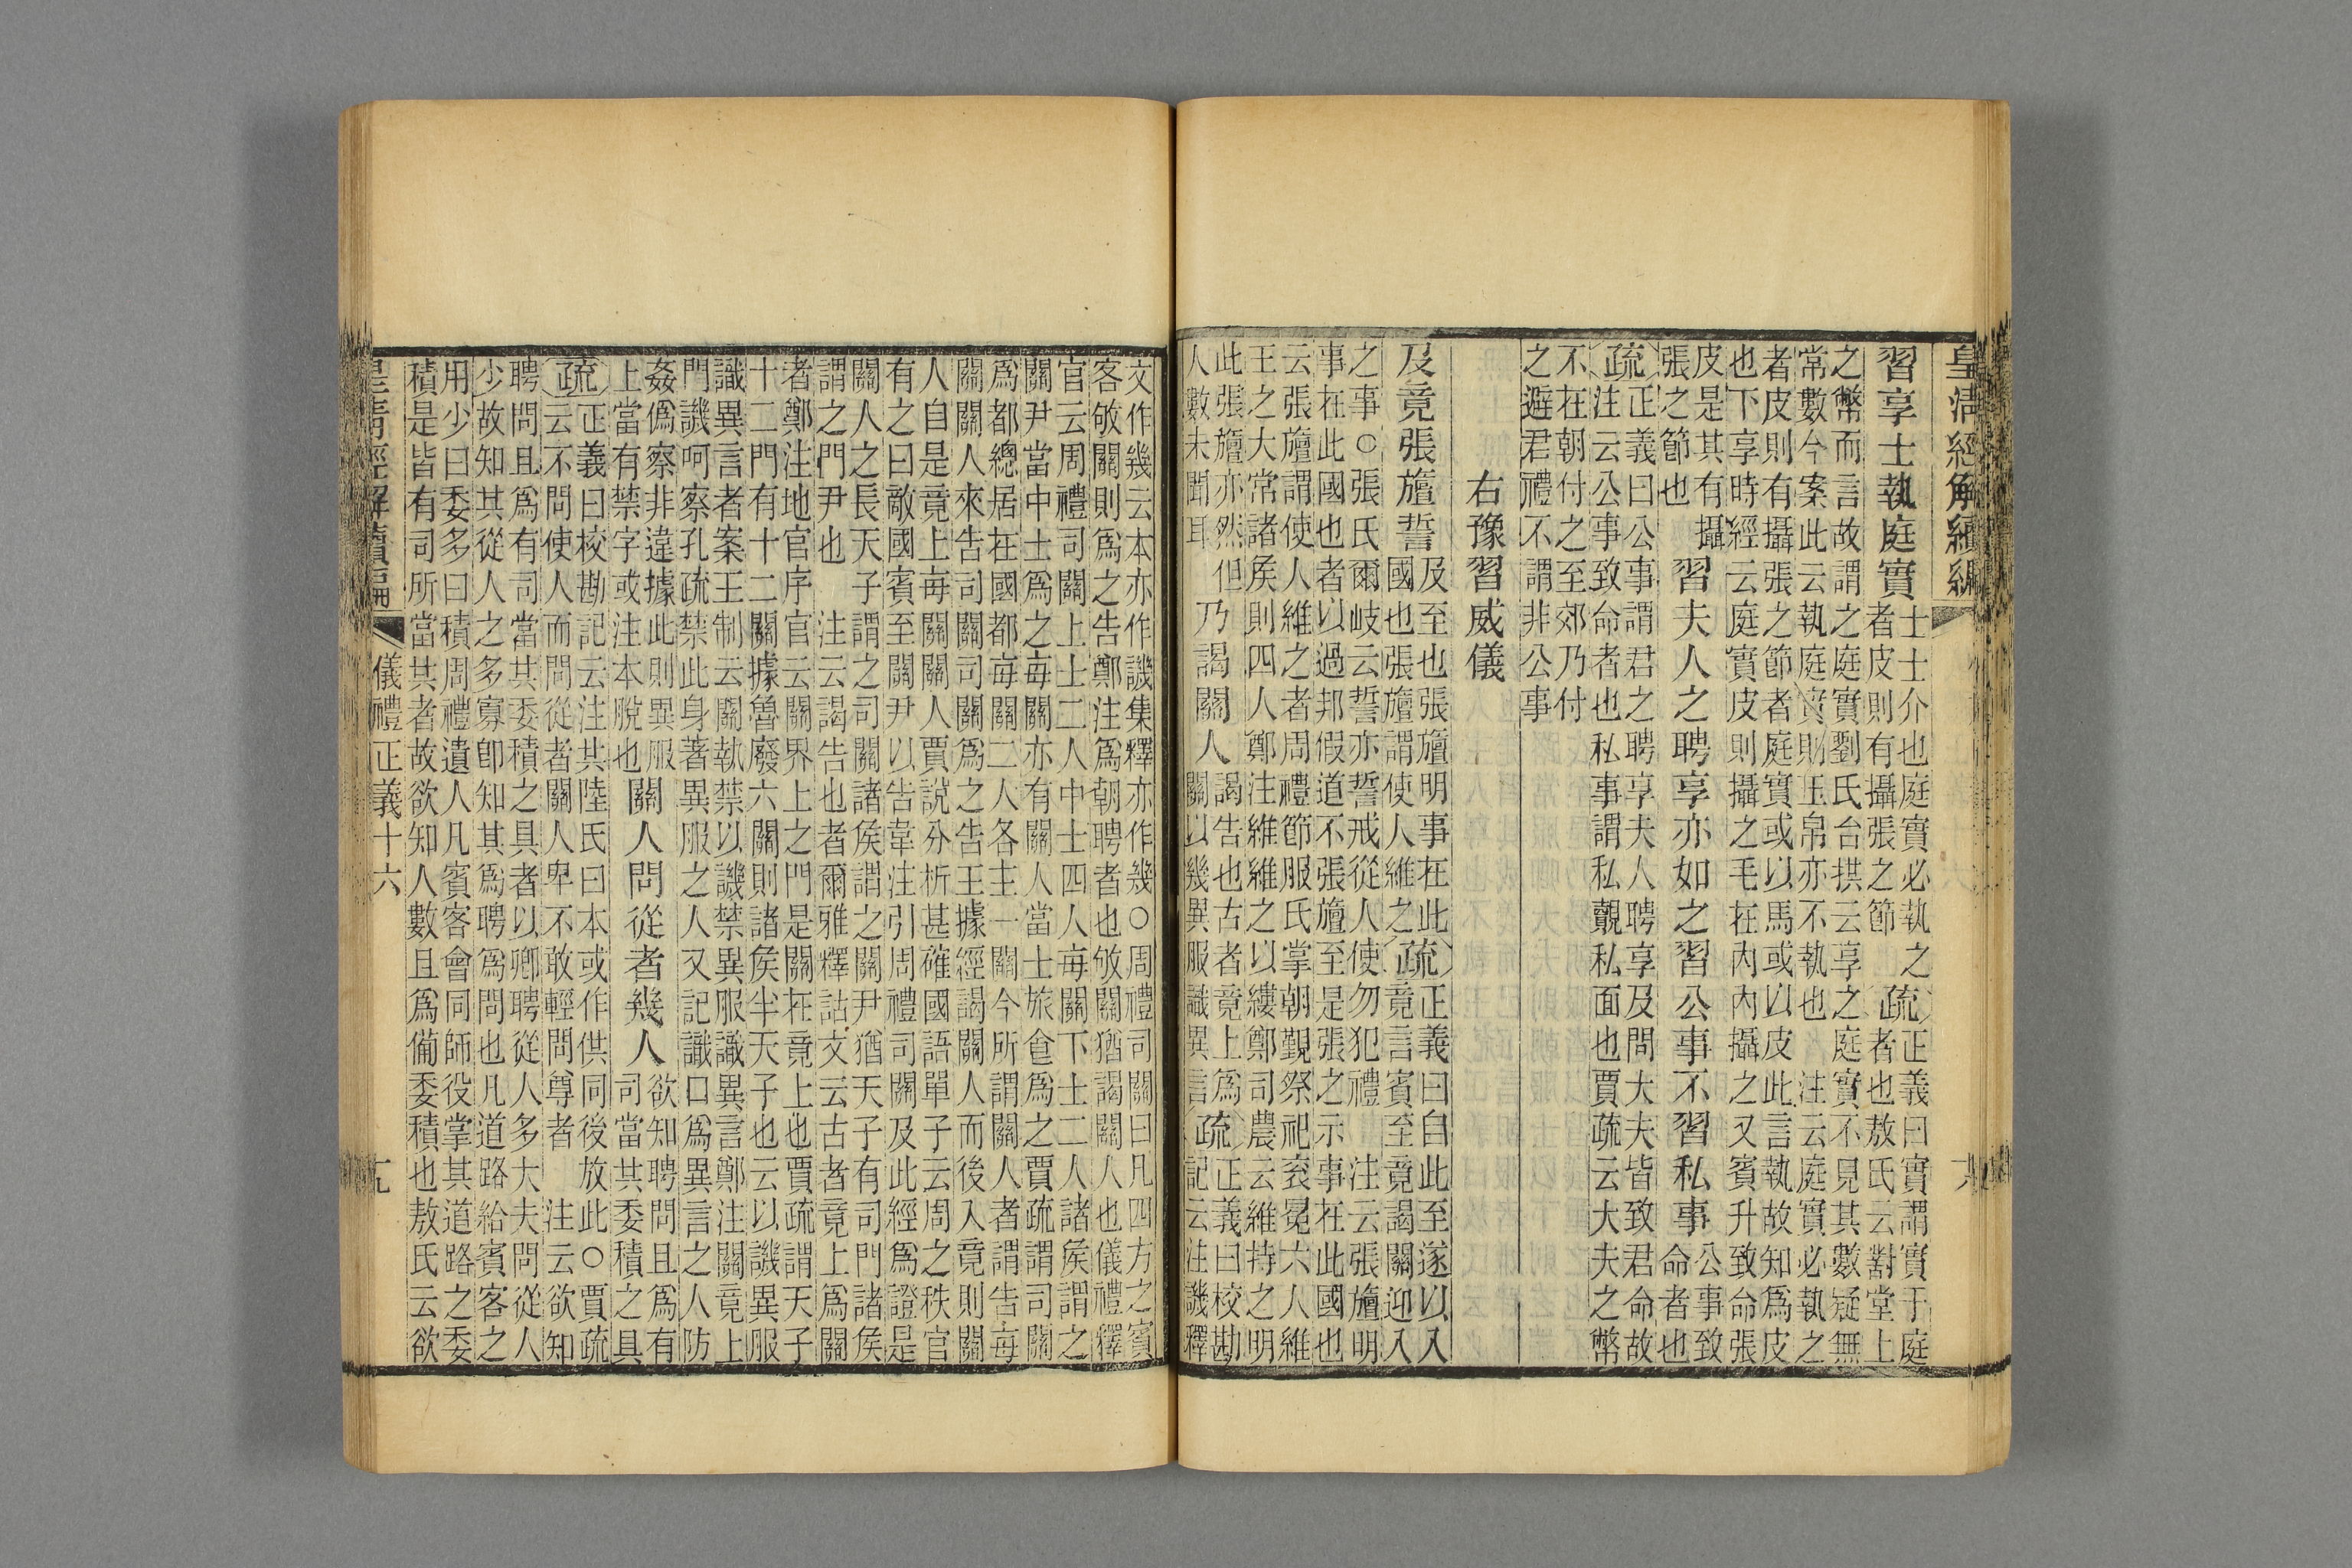 皇清經解續編
習享士執庭實
士士介也庭實必執之
者皮則有攝張之節
疏
正義曰實謂實于庭
者也敖氏云對堂上
之幣而言故謂之庭實劉氏台拱云享之庭實不見其數疑無
常數今案此云執庭實則玉帛亦不執也　注云庭實必執之
者皮則有攝張之節者庭實或以馬或以皮此言執故知爲皮
也下享時經云庭實皮則攝之毛在內內攝之又賓升致命張
皮是其有攝
張之節也
習夫人之聘享亦如之習公事不習私事
公事致
命者也
疏
正義曰公事謂君之聘享夫人聘享及問大夫皆致君命故
注云公事致命者也私事謂私覿私面也賈疏云大夫之幣
不在朝付之至郊乃付
之避君禮不謂非公事
右豫習威儀
及竟張旜誓
及至也張旜明事在此
國也張旜謂使人維之
疏
正義曰自此至遂以入
竟言賓至竟謁關迎入
之事○張氏爾岐云誓亦誓戒從人使勿犯禮　注云張旜明
事在此國也者以過邦假道不張旜至是張之示事在此國也
云張旜謂使人維之者周禮節服氏掌朝覲祭祀袞冕六人維
王之大常諸侯則四人鄭注維維之以縷鄭司農云維持之明
此張旜亦然但
人數未聞耳
乃謁關人
謁告也古者竟上爲
關以幾異服識異言
疏
正義曰校勘
記云注譏釋
文作幾云本亦作譏集釋亦作幾○周禮司關曰凡四方之賓
客敂關則爲之告鄭注爲朝聘者也敂關猶謁關人也儀禮釋
官云周禮司關上士二人中士四人每關下士二人諸侯謂之
關尹當中士爲之每關亦有關人當士旅食爲之賈疏謂司關
爲都總居在國都每關二人各主一關今所謂關人者謂告每
關關人來告司關司關爲之告王據經謁關人而後入竟則關
人自是竟上每關關人賈說分析甚確國語單子云周之秩官
有之曰敵國賓至關尹以告韋注引周禮司關及此經爲證是
關人之長天子謂之司關諸侯謂之關尹猶天子有司門諸侯
謂之門尹也　注云謁告也者爾雅釋詁文云古者竟上爲關
者鄭注地官序官云關界上之門是關在竟上也賈疏謂天子
十二門有十二關據魯廢六關則諸侯半天子也云以譏異服
識異言者案王制云關執禁以譏禁異服識異言鄭注關竟上
門譏呵察孔疏禁此身著異服之人又記識口爲異言之人防
姦僞察非違據此則異服
上當有禁字或注本脫也
關人問從者幾人
欲知聘問且爲有
司當共委積之具
疏
正義曰校勘記云注共陸氏曰本或作供同後放此○賈疏
云不問使人而問從者關人卑不敢輕問尊者　注云欲知
聘問且爲有司當共委積之具者以卿聘從人多大夫問從人
少故知其從人之多寡卽知其爲聘爲問也凡道路給賓客之
用少曰委多曰積周禮遺人凡賓客會同師役掌其道路之委
積是皆有司所當共者故欲知人數且爲備委積也敖氏云欲
皇清經解續編
儀禮正義十六